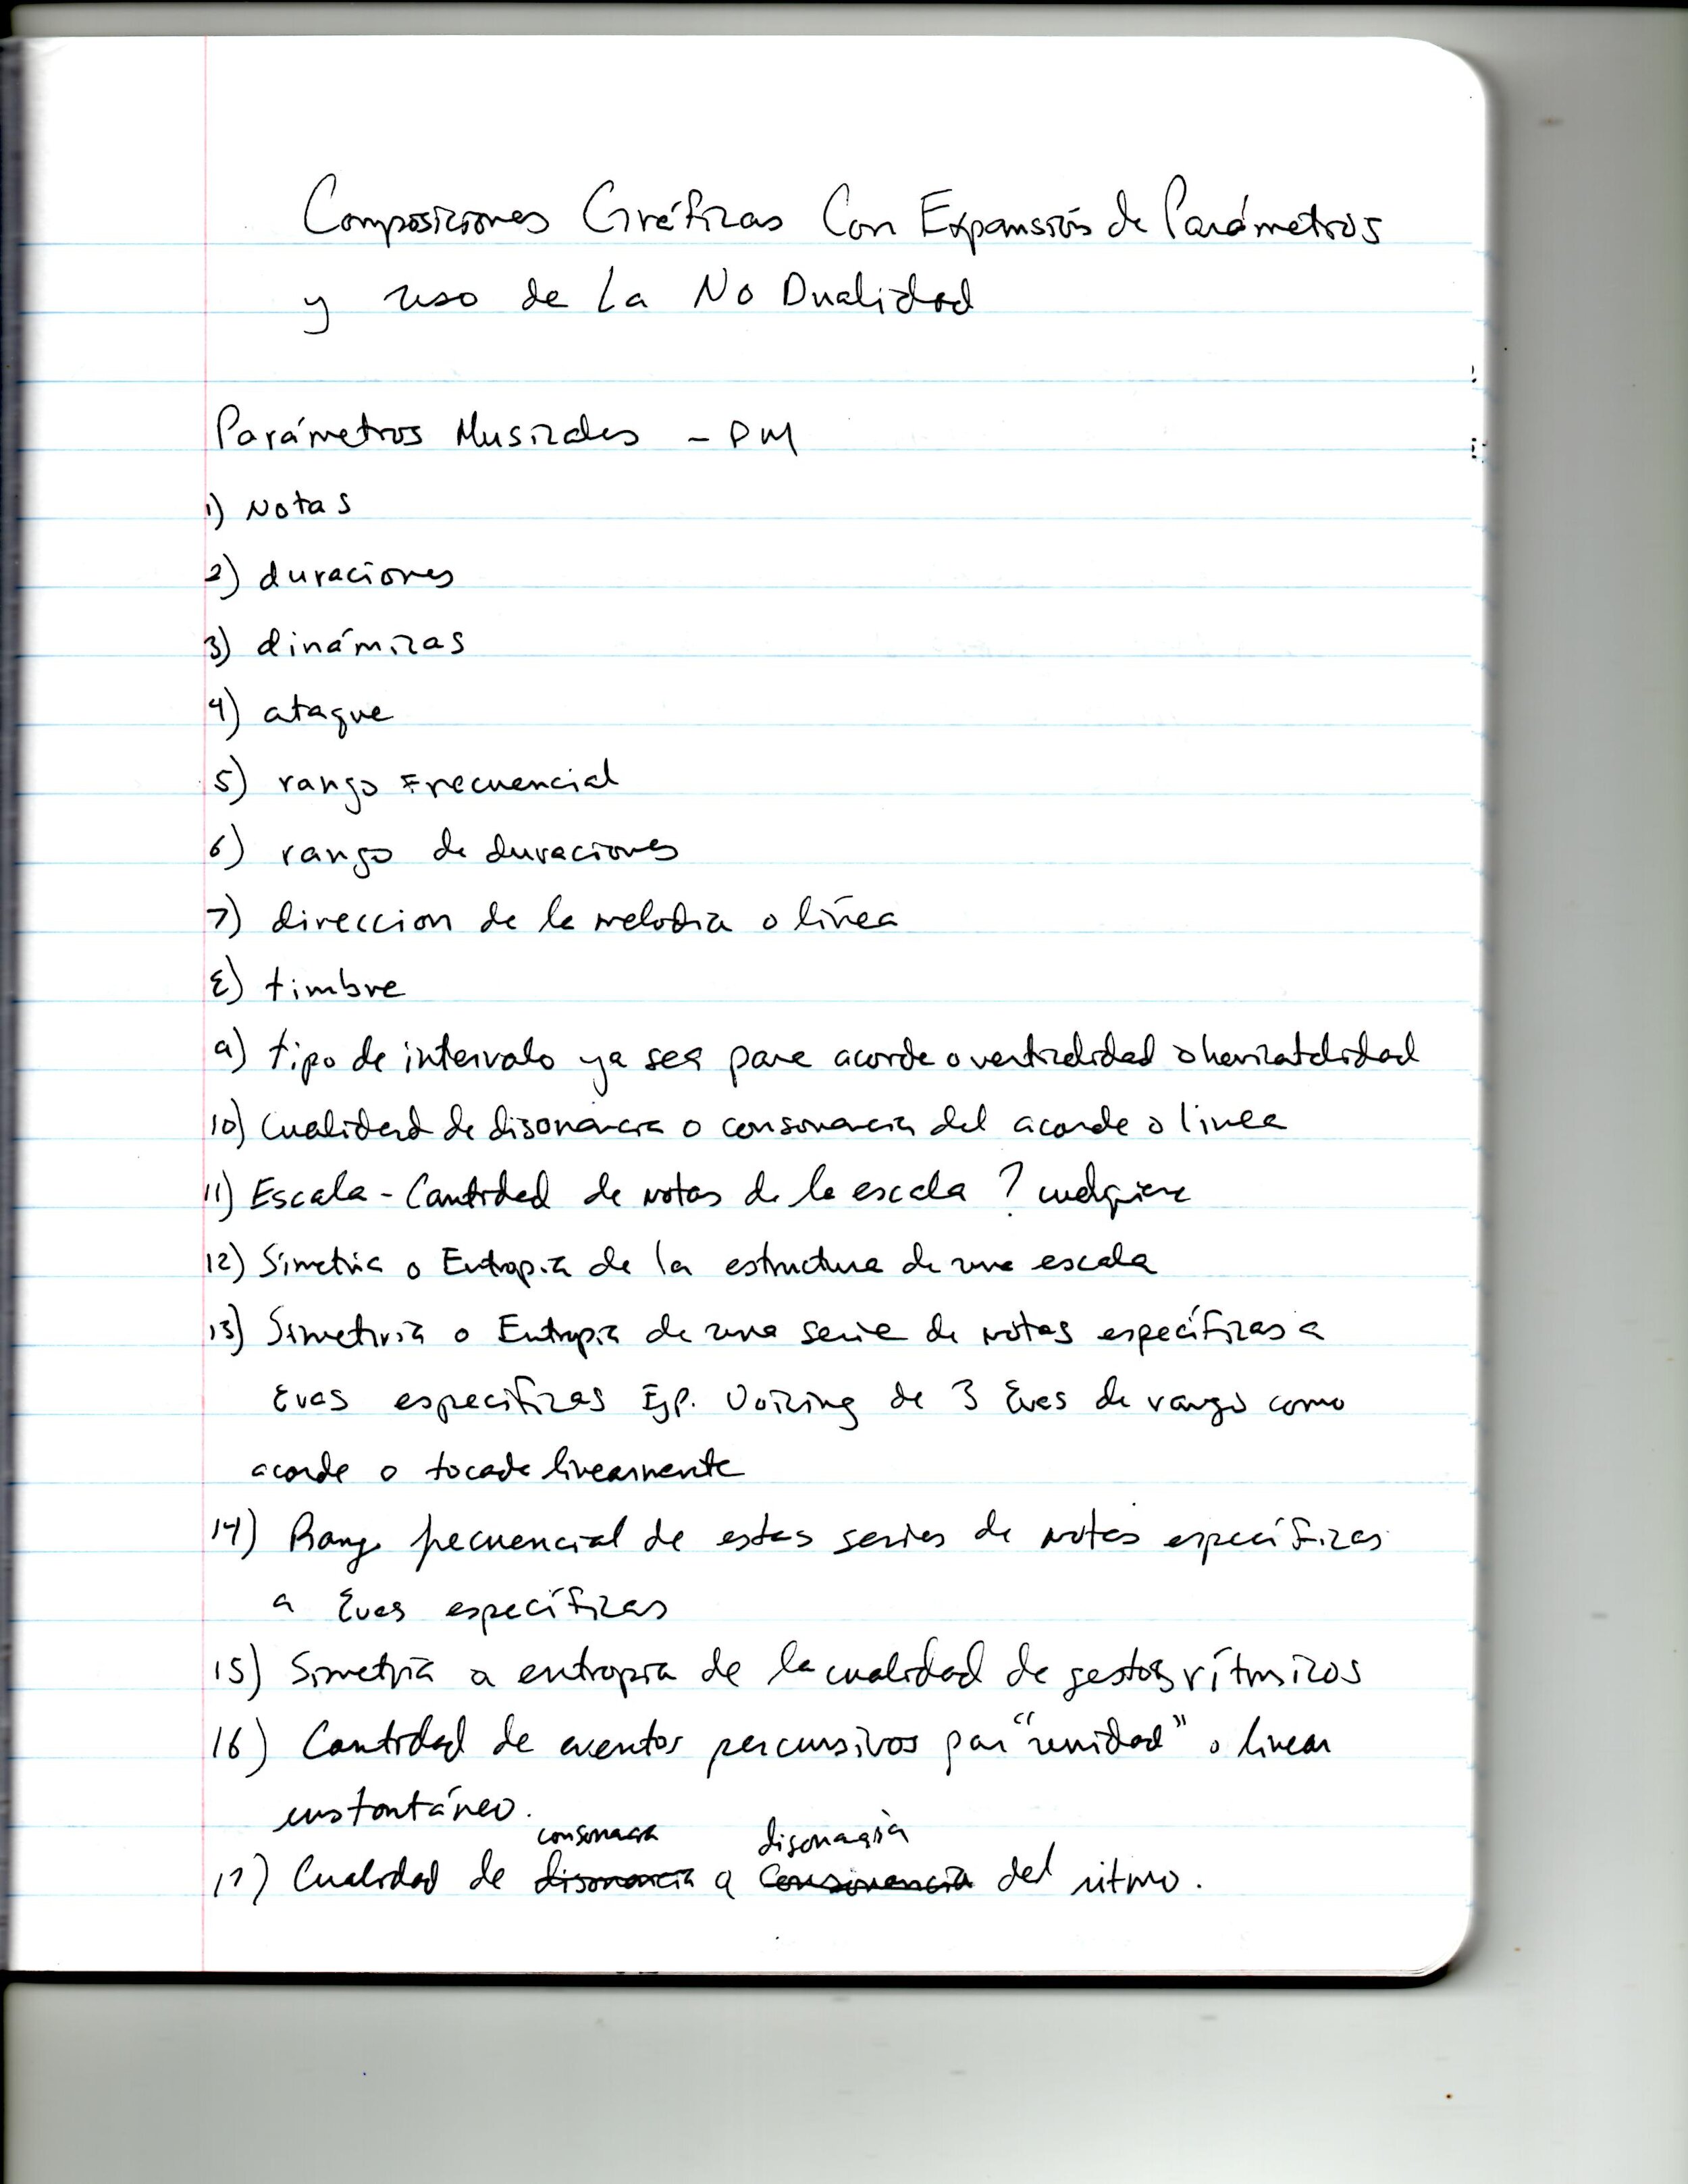 Composiciones Gráficas Con Expansión de Parámetros
y uso de La No Dualidad
Parámetros Musicales - PM
1) Notas
2) duraciones
3) dinámicas
4) ataque
5) rango Frecuencial
6) rango de duraciones
7) direccion de la melodia o línea
8) timbre
9) tipo de intervalo ya sea para acorde o verticalidad o horizatalidad
10) Cualidad de disonancia o consonancia del acorde o linea
11) Escala - Cantidad de notas de la escala ? cualquiera
12) Simetria o Entropia de la estructura de una escala
13) Simetria o Entropia de una serie de notas específicas a
8vas especificas Ejp. Voicing de 3 8vas de rango como
acorde o tocada linearmente
14) Rango frecuencial de estas series de notas específicas
a 8vas específicas
15) Simetria a entropia de la cualidad de gestos rítmicos
16) Cantidad de eventos percusivos por "unidad" o linear
instantáneo.
consonacia disonancia
17) Cualidad de disonancia a Consonancia del ritmo.